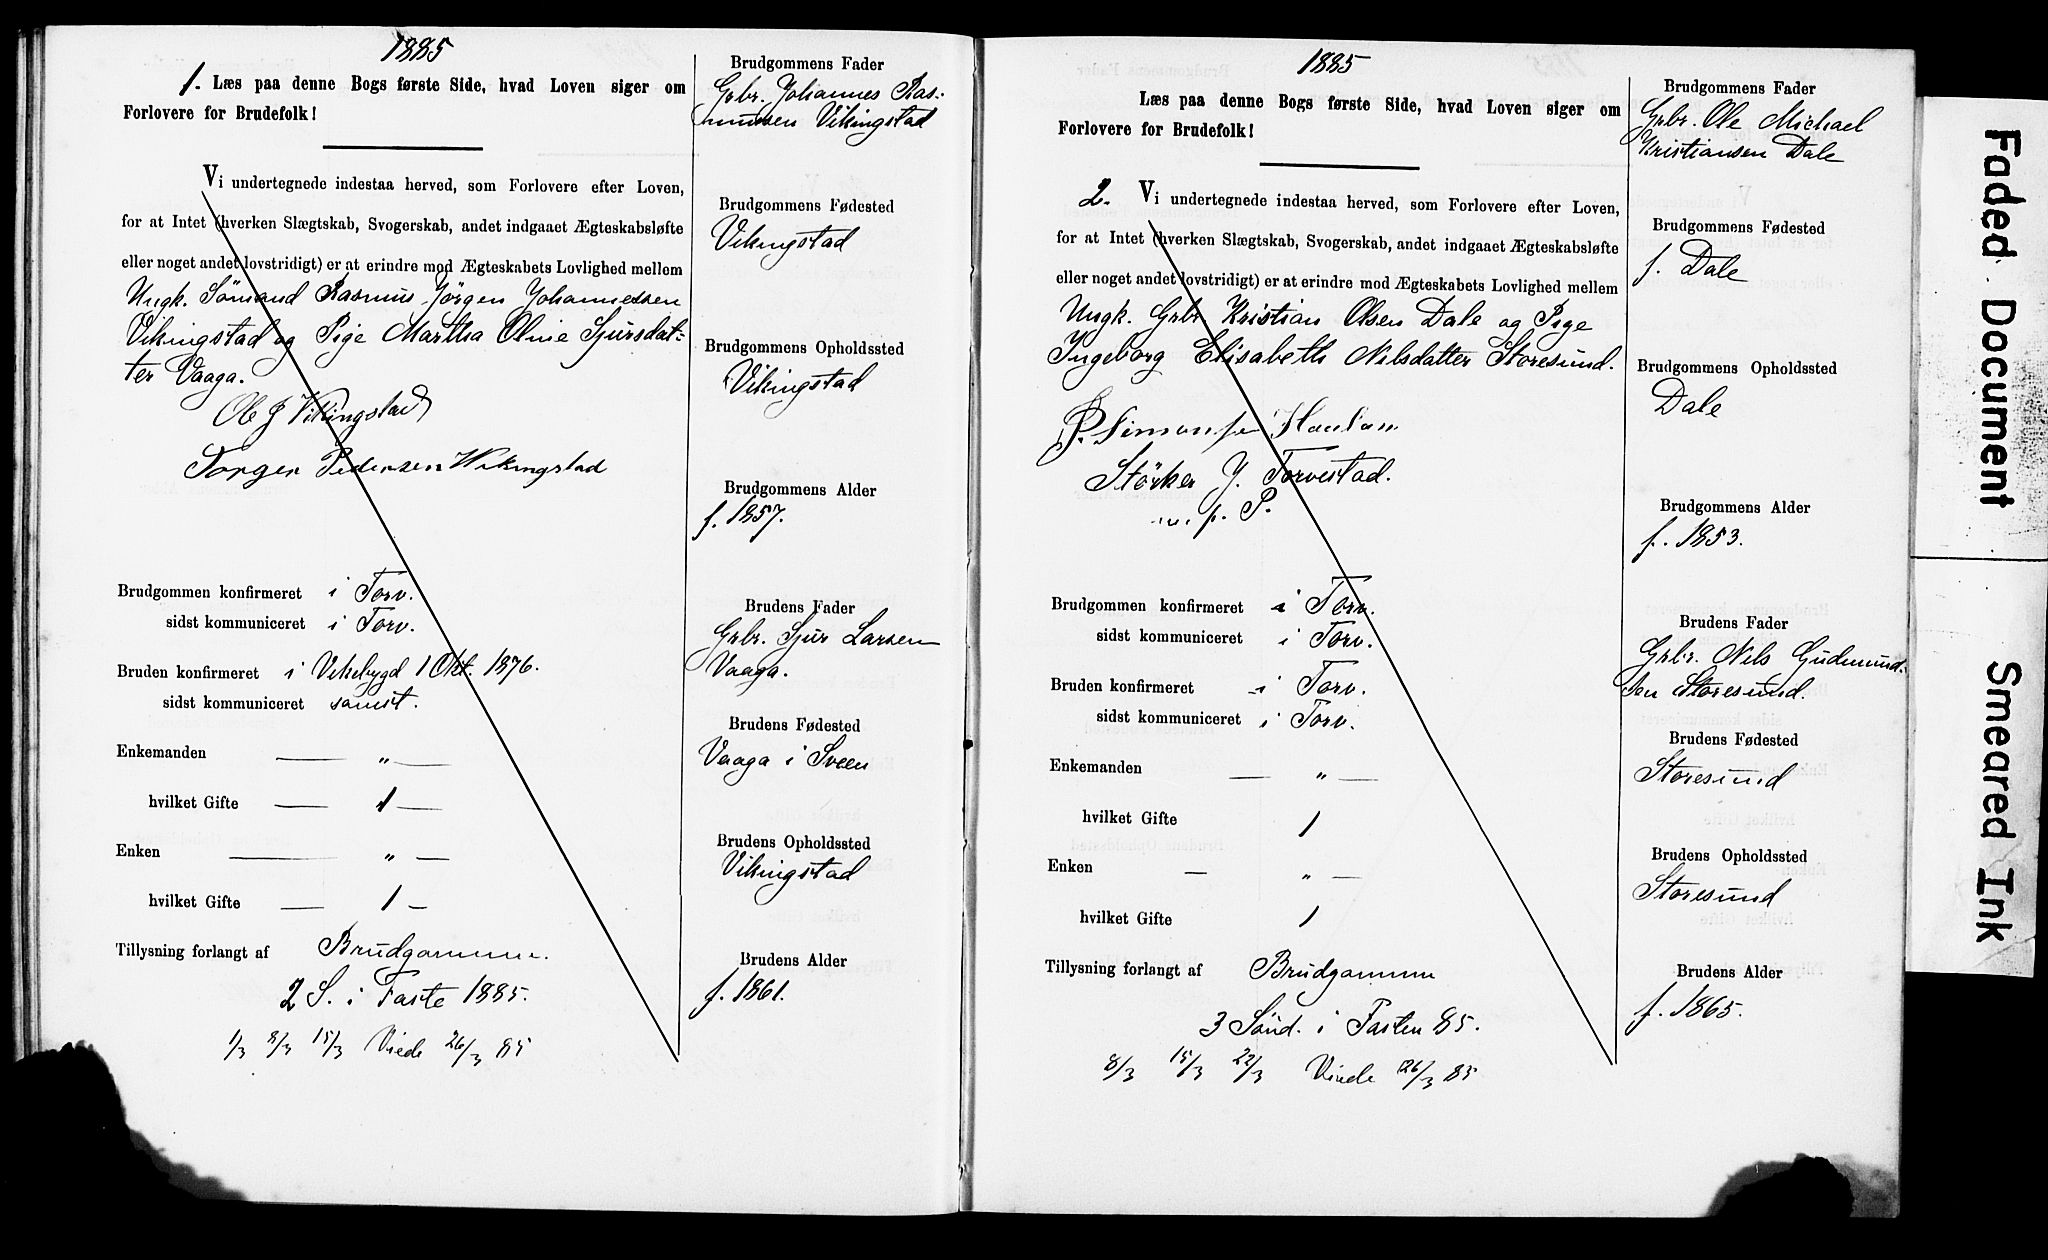 1885
1. Læs paa denne Bogs første Side, hvad Loven siger om
Forlovere for Brudefolk!
Vi undertegnede indestaa herved, som Forlovere efter Loven,
for at Intet (hverken Slægtskab, Svogerskab, andet indgaaet Ægteskabsløfte
eller noget andet lovstridigt) er at erindre mod Ægteskabets Lovlighed mellem
Ungk. Sömand Rasmus Jörgen Johannessen
Vikingstad og Pige Martha Oline Sjursdat-
ter Vaaga.
Ole J Vikingstad
Torger Pedersen Wikingstad
Brudgommen konfirmeret i Torv.
sidst kommuniceret i Torv.
Bruden konfirmeret i Vikebygd 1 Okt. 1876.
sidst kommuniceret samst.
Enkemanden — „ —
hvilket Gifte — 1 —
Enken — „ —
hvilket Gifte — 1 —
Tillysning forlangt af Brudgommen.
2 S. i Faste 1885.
1/3 8/3 15/3 Viede 26/3 85
Brudgommens Fader
Grbr. Johannes Ras-
mussen Vikingstad
Brudgommens Fødested
Vikingstad
Brudgommens Opholdssted
Vikingstad
Brudgommens Alder
f. 1857.
Brudens Fader
Grbr. Sjur Larsen
Vaaga.
Brudens Fødested
Vaaga i Sveen
Brudens Opholdssted
Vikingstad
Brudens Alder
f. 1861.
1885
Læs paa denne Bogs første Side, hvad Loven siger om
Forlovere for Brudefolk!
2. Vi undertegnede indestaa herved, som Forlovere efter Loven,
for at Intet (hverken Slægtskab, Svogerskab, andet indgaaet Ægteskabsløfte
eller noget andet lovstridigt) er at erindre mod Ægteskabets Lovlighed mellem
Ungk. Grbr. Kristian Olsen Dale og Pige
Ingeborg Elisabeth Nilsdatter Storesund.
Simonsen
Störker J. Torvestad.
m. p. P.
Brudgommen konfirmeret i Torv.
sidst kommuniceret i Torv.
Bruden konfirmeret i Torv.
sidst kommuniceret i Torv.
Enkemanden — „ —
hvilket Gifte 1
Enken — „ —
hvilket Gifte 1
Tillysning forlangt af Brudgommen
3 Sönd. i Fasten 85.
8/3 15/3 22/3 Viede 26/3 85
Brudgommens Fader
Grbr. Ole Michael
Kristiansen Dale
Brudgommens Fødested
f. Dale
Brudgommens Opholdssted
Dale
Brudgommens Alder
f. 1853.
Brudens Fader
Grbr. Nils Gudmund-
sen Storesund.
Brudens Fødested
Storesund
Brudens Opholdssted
Storesund
Brudens Alder
f. 1865.
Faded Document
Smeared Ink